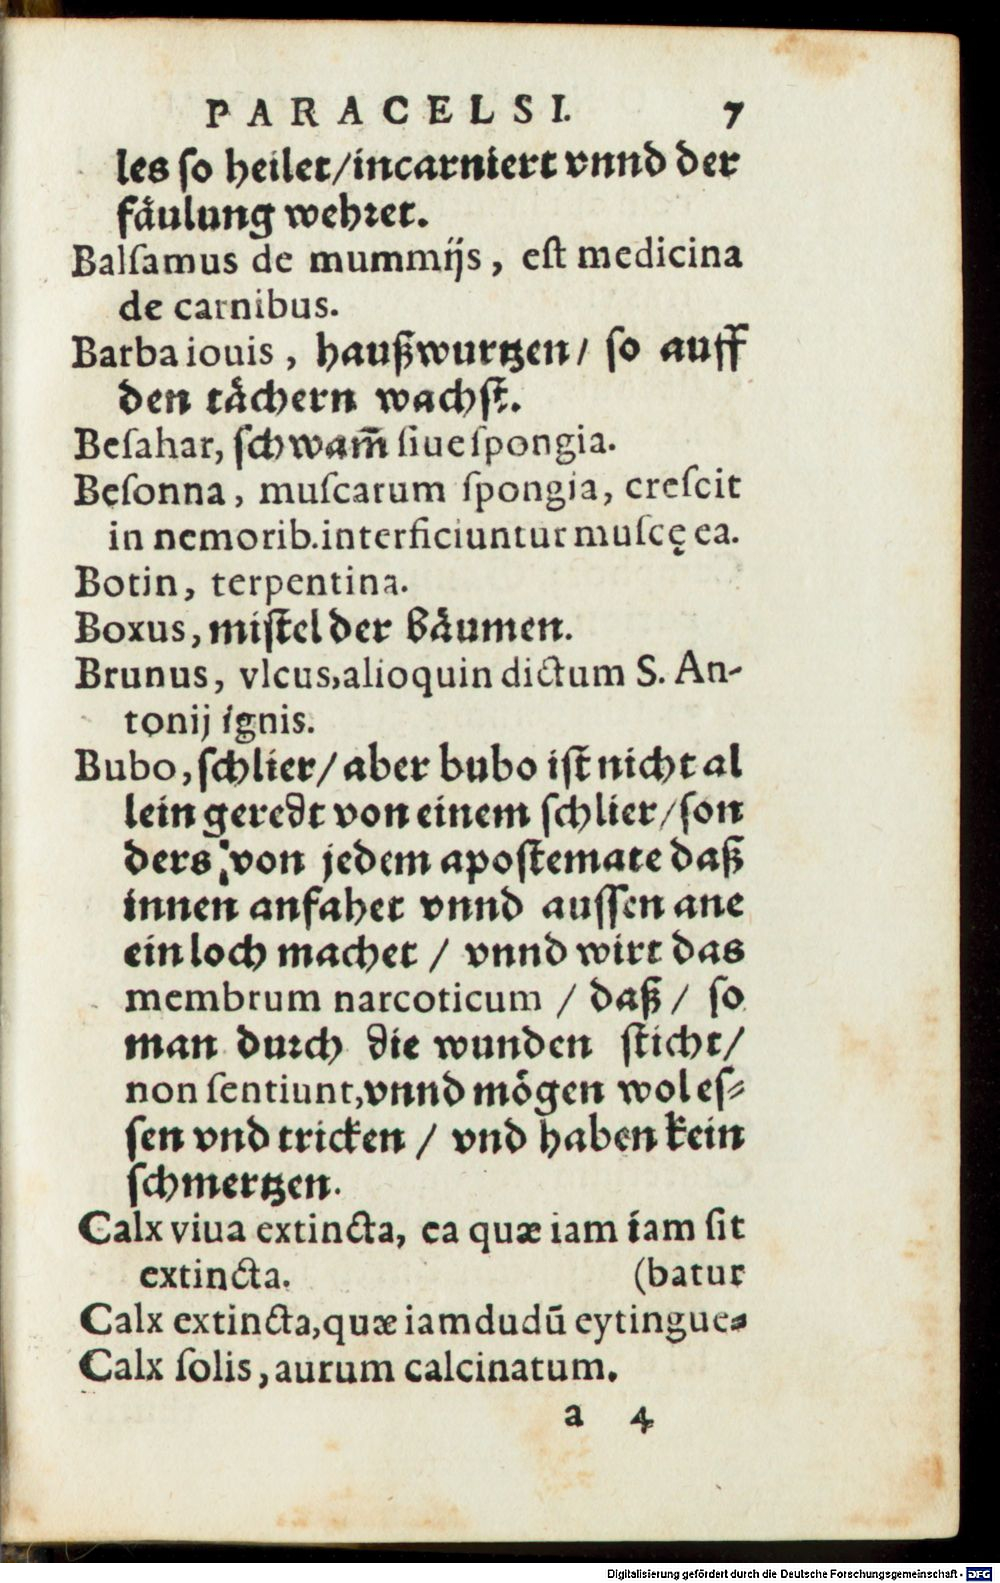 PARACELSI. 7
les so heilet/incarniert vnnd der
fäulung wehret.
Balſamus de mummijs, eſt medicina
de carnibus.
Barba iouis, haußwurtzen/ ſo auff
den tächern wachſt.
Beſahar, ſchwam̄ ſiue ſpongia.
Beſonna, muſcarum ſpongia, creſcit
in nemorib. interficiuntur muſcę ea.
Botin, terpentina.
Boxus, miſtel der Bäumen.
Brunus, vlcus, alioquin dictum S. An-
tonij ignis.
Bubo, ſchlier/ aber bubo iſt nicht al
lein geredt von einem ſchlier/ſon
ders von jedem apoſtemate daß
innen anfahet vnnd auſſen ane
ein loch machet / vnnd wirt das
membrum narcoticum / daß / ſo
man durch die wunden ſticht/
non ſentiunt, vnnd mögen wol eſ-
ſen vnd tricken / vnd haben kein
ſchmertzen.
Calx viua extincta, ea quæ iam iam ſit
extincta. (batur
Calx extincta, quæ iamdudū eytingue-
Calx ſolis, aurum calcinatum.
a 4
Digitalisierung gefördert durch die Deutsche Forschungsgemeinschaft - DFG